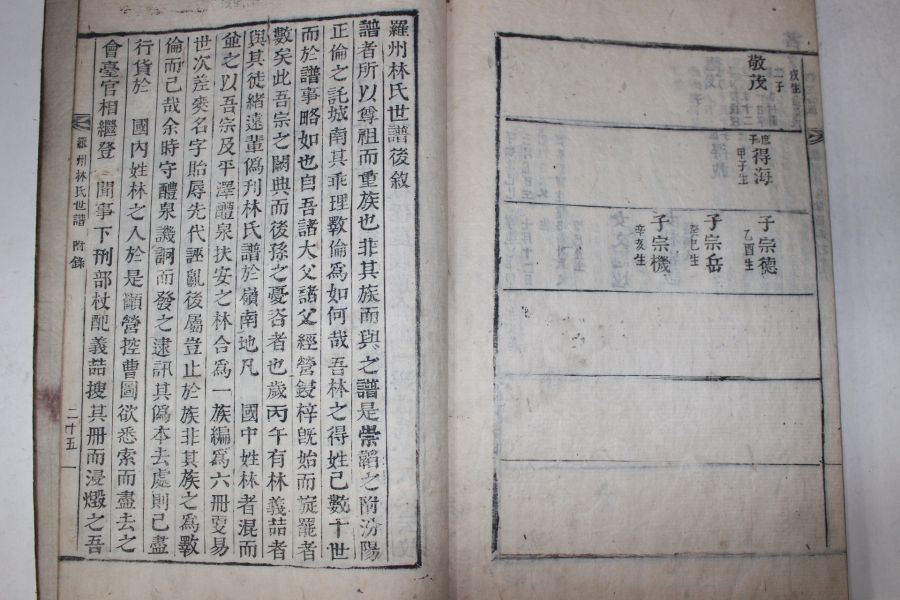 二子
敬茂
庶子
得海
甲子生
子宗德
乙酉生
子宗岳
癸巳生
子宗機
辛亥生
羅州林氏世譜後敘
譜者所以尊祖而重族也非其族而與之譜是崇韜之附汾陽
正倫之託城南其乖理斁倫爲如何哉吾林之得姓已數十世
而於譜事略如也自吾諸大父諸父經營鋟梓旣始而旋罷者
數矣此吾宗之闕典而後孫之憂吝者也歲丙午有林義喆者
與其徒緒遠輩僞刋林氏譜於嶺南地凡 國中姓林者混而
並之以吾宗及平澤醴泉扶安之林合爲一族編爲六冊變易
世次差爽名字貽辱先代誣亂後屬豈止於族非其族之爲斁
倫而已哉余時守醴泉譏詗而發之逮訊其僞本去處則已盡
行貨於 國內姓林之人於是籲營控曹圖欲悉索而盡去之
會臺官相繼登 聞事下刑部杖配義喆搜其冊而浸燬之吾
羅州林氏世譜 附錄
二十五